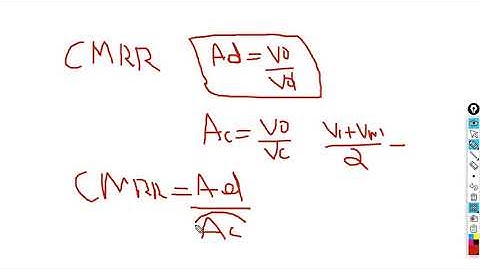 CMRR Ad = Vo/Vd
Ac = Vo/Vc V1+Vn1/2 -
CMRR = Ad/Ac